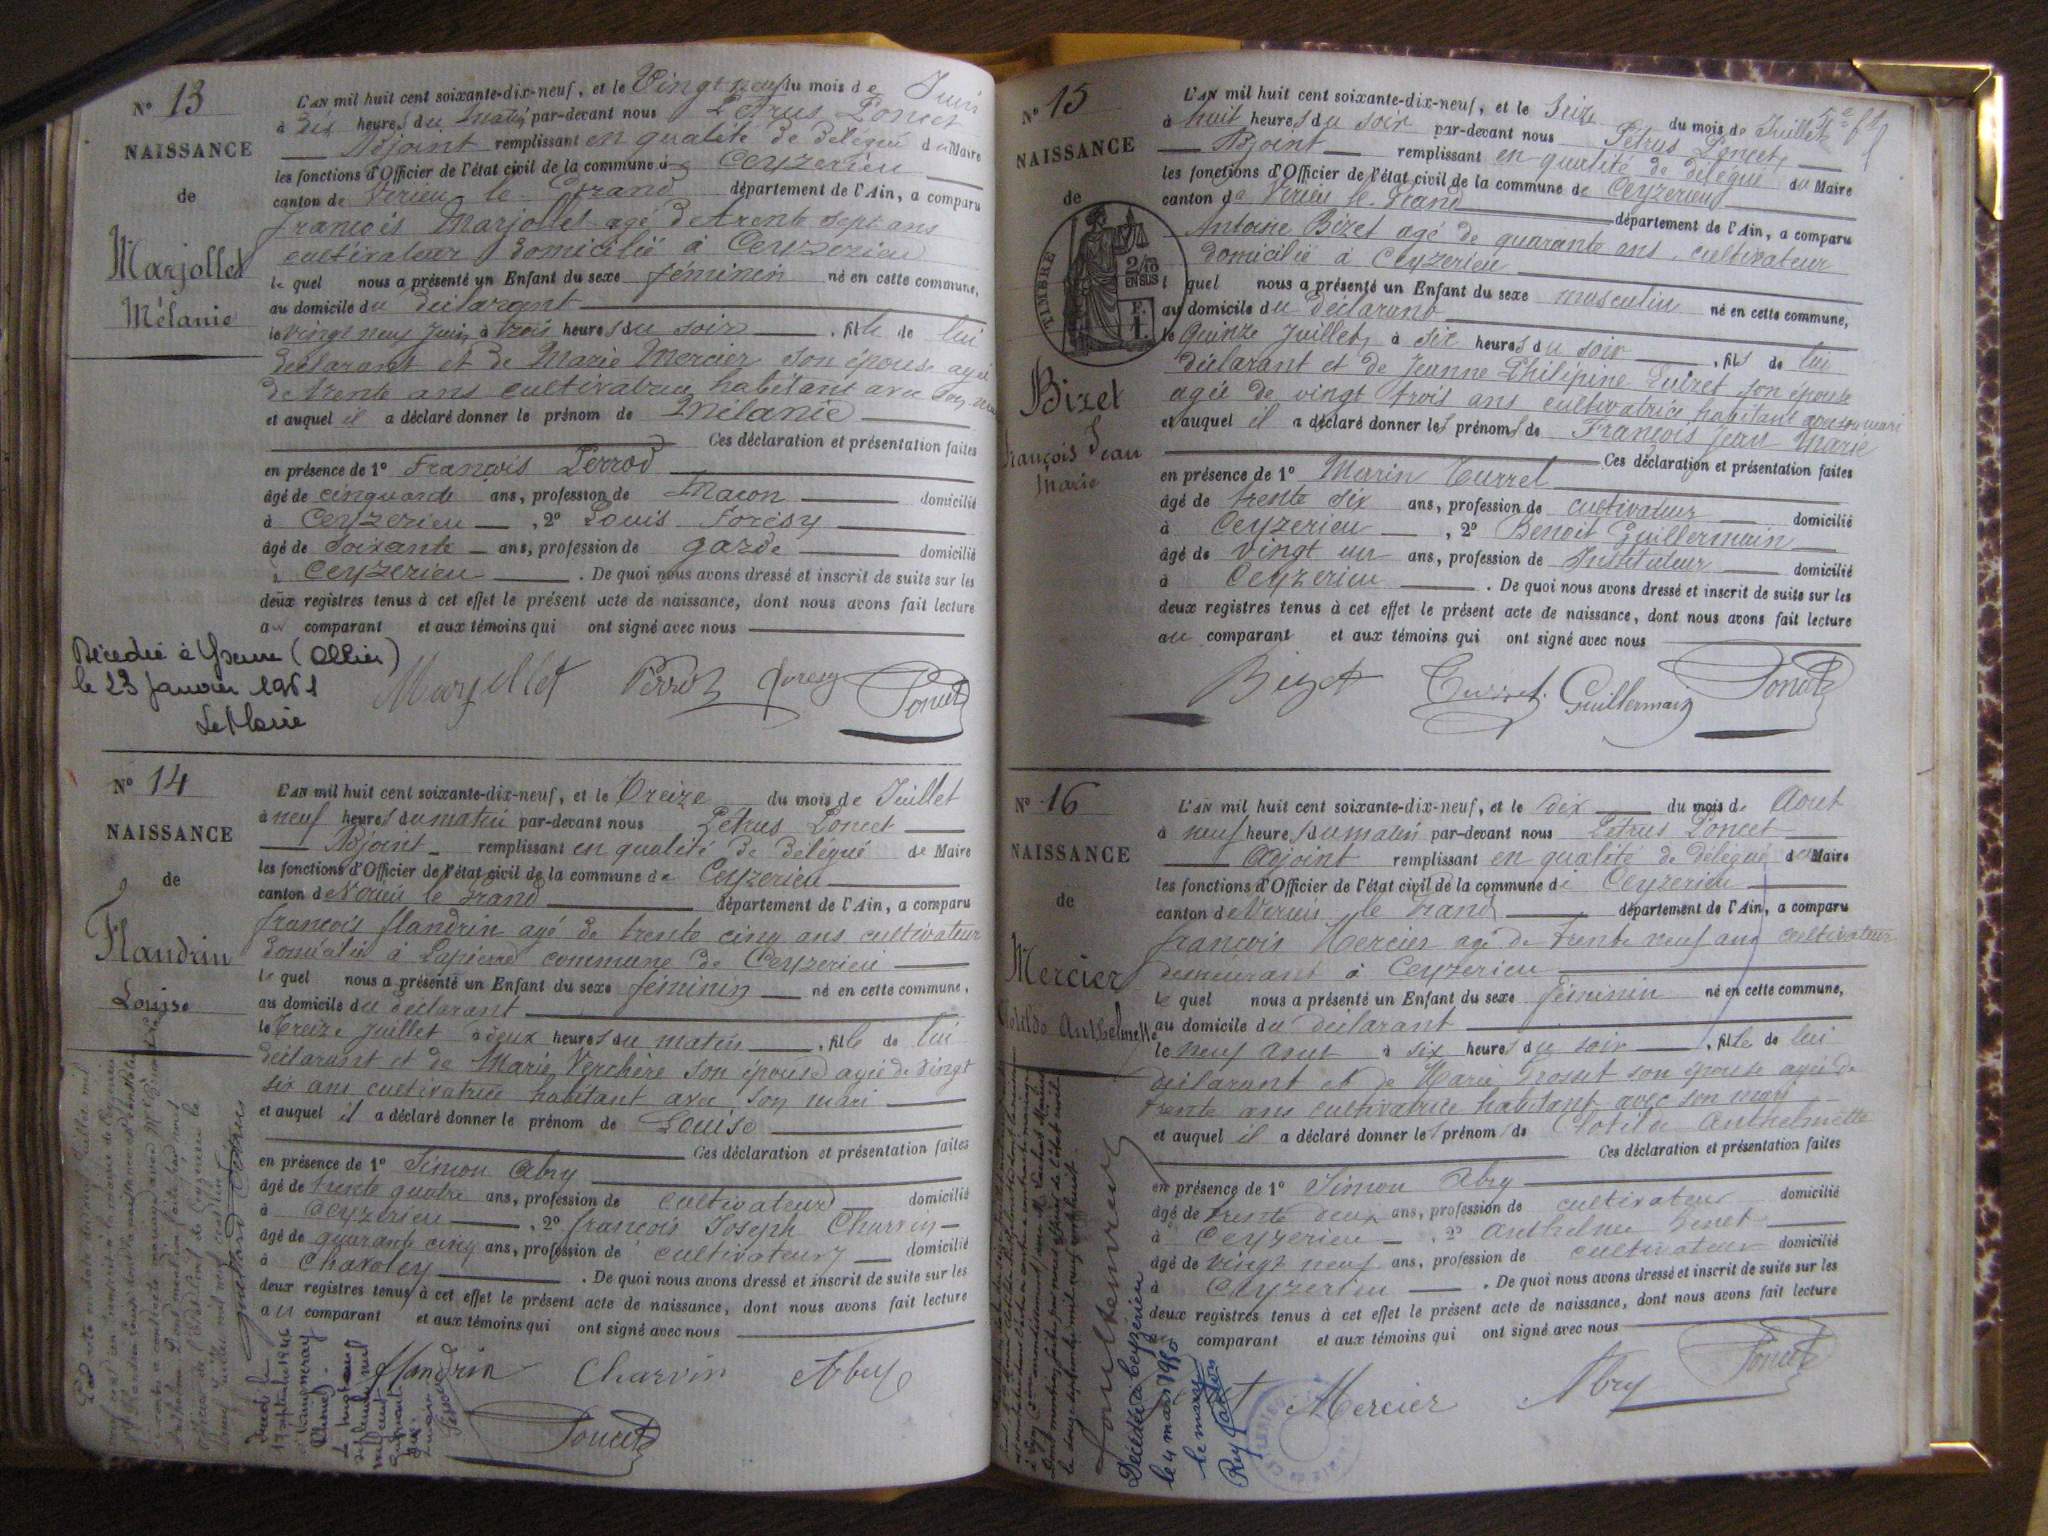 N° 13
NAISSANCE
de
Marjollet
Mélanie
L'AN mil huit cent soixante-dix-neuf, et le Vingt neuf du mois de Juin
à dix heures du matin par-devant nous Pétrus Poncet
Adjoint remplissant en qualité de délégué du Maire
les fonctions d'Officier de l'état civil de la commune de Ceyzerieu
canton de Virieu le Grand département de l'Ain, a comparu
françois Marjollet agé de trente sept ans
cultivateur domicilié à Ceyzerieu
le quel nous a présenté un Enfant du sexe féminin né en cette commune,
au domicile du déclarant
le vingt neuf Juin à trois heures du soir , fille de lui
déclarant et de Marie Mercier son épouse agée
de trente ans cultivatrice habitant avec son mari
et auquel il a déclaré donner le prénom de Mélanie
Ces déclaration et présentation faites
en présence de 1° François Perrod
âgé de cinquante ans, profession de Maçon domicilié
à Ceyzerieu , 2° Louis Forésy
âgé de soixante ans, profession de garde domicilié
à Ceyzerieu . De quoi nous avons dressé et inscrit de suite sur les
deux registres tenus à cet effet le présent acte de naissance, dont nous avons fait lecture
au comparant et aux témoins qui ont signé avec nous
Décédée à (Allier)
le 23 Janvier 1961
Le Maire
Marjollet Perrod Foresy Poncet
N° 14
NAISSANCE
de
Flandrin
Louise
L'AN mil huit cent soixante-dix-neuf, et le Treize du mois de Juillet
à neuf heures du matin par-devant nous Pétrus Poncet
Adjoint remplissant en qualité de délégué de Maire
les fonctions d'Officier de l'état civil de la commune de Ceyzerieu
canton de Virieu le Grand département de l'Ain, a comparu
françois flandrin agé de trente cinq ans cultivateur
domicilié à Lapierre commune de Ceyzerieu
le quel nous a présenté un Enfant du sexe féminin né en cette commune,
au domicile du déclarant
le treize Juillet à deux heures du matin , fille de lui
déclarant et de Marie Verchère son épouse agée de vingt
six ans cultivatrice habitant avec son mari
et auquel il a déclaré donner le prénom de Louise
Ces déclaration et présentation faites
en présence de 1° Simon Abry
âgé de trente quatre ans, profession de cultivateur domicilié
à Ceyzerieu , 2° françois Joseph Charvin
âgé de quarante cinq ans, profession de cultivateur domicilié
à Chavoley . De quoi nous avons dressé et inscrit de suite sur les
deux registres tenus à cet effet le présent acte de naissance, dont nous avons fait lecture
au comparant et aux témoins qui ont signé avec nous
flandrin Charvin Abry
Poncet
N° 15
NAISSANCE
de
TIMBRE
2/10
EN SUS
Bizet
François Jean
Marie
L'AN mil huit cent soixante-dix-neuf, et le Seize du mois de Juillet
à huit heures du soir par-devant nous Pétrus Poncet,
Adjoint remplissant en qualité de délégué du Maire
les fonctions d'Officier de l'état civil de la commune de Ceyzerieu
canton de Virieu le Grand département de l'Ain, a comparu
Antoine Bizet agé de quarante ans, cultivateur
domicilié à Ceyzerieu
quel nous a présenté un Enfant du sexe masculin né en cette commune,
au domicile du déclarant
le quinze Juillet, à six heures du soir , fils de lui
déclarant et de Jeanne Philipine son épouse
agée de vingt trois ans cultivatrice habitant avec son mari
et auquel il a déclaré donner les prénoms de François Jean Marie
Ces déclaration et présentation faites
en présence de 1° Marin Turrel
âgé de trente six ans, profession de cultivateur domicilié
à Ceyzerieu , 2° Benoit Guillermain
âgé de vingt un ans, profession de Instituteur domicilié
à Ceyzerieu . De quoi nous avons dressé et inscrit de suite sur les
deux registres tenus à cet effet le présent acte de naissance, dont nous avons fait lecture
au comparant et aux témoins qui ont signé avec nous
Bizet Turrel Guillermain Poncet
N° 16
NAISSANCE
de
Mercier
Clotilde Anthelmette
L'AN mil huit cent soixante-dix-neuf, et le dix du mois de Aout
à neuf heures du matin par-devant nous Pétrus Poncet
Adjoint remplissant en qualité de délégué de Maire
les fonctions d'Officier de l'état civil de la commune de Ceyzerieu
canton de Virieu le Grand département de l'Ain, a comparu
françois Mercier agé de trente neuf ans cultivateur
demeurant à Ceyzerieu
le quel nous a présenté un Enfant du sexe féminin né en cette commune,
au domicile du déclarant
le neuf aout à six heures du soir , fille de lui
déclarant et de Marie son épouse agée de
trente ans cultivatrice habitant avec son mari
et auquel il a déclaré donner les prénoms de Clotilde Anthelmette
Ces déclaration et présentation faites
en présence de 1° Simon Abry
âgé de trente deux ans, profession de cultivateur domicilié
à Ceyzerieu , 2° Anthelme
âgé de vingt neuf ans, profession de cultivateur domicilié
à Ceyzerieu . De quoi nous avons dressé et inscrit de suite sur les
deux registres tenus à cet effet le présent acte de naissance, dont nous avons fait lecture
comparant et aux témoins qui ont signé avec nous
Mercier Abry Poncet
Décédée à Ceyzérieu
le 4 mars 1950
le maire